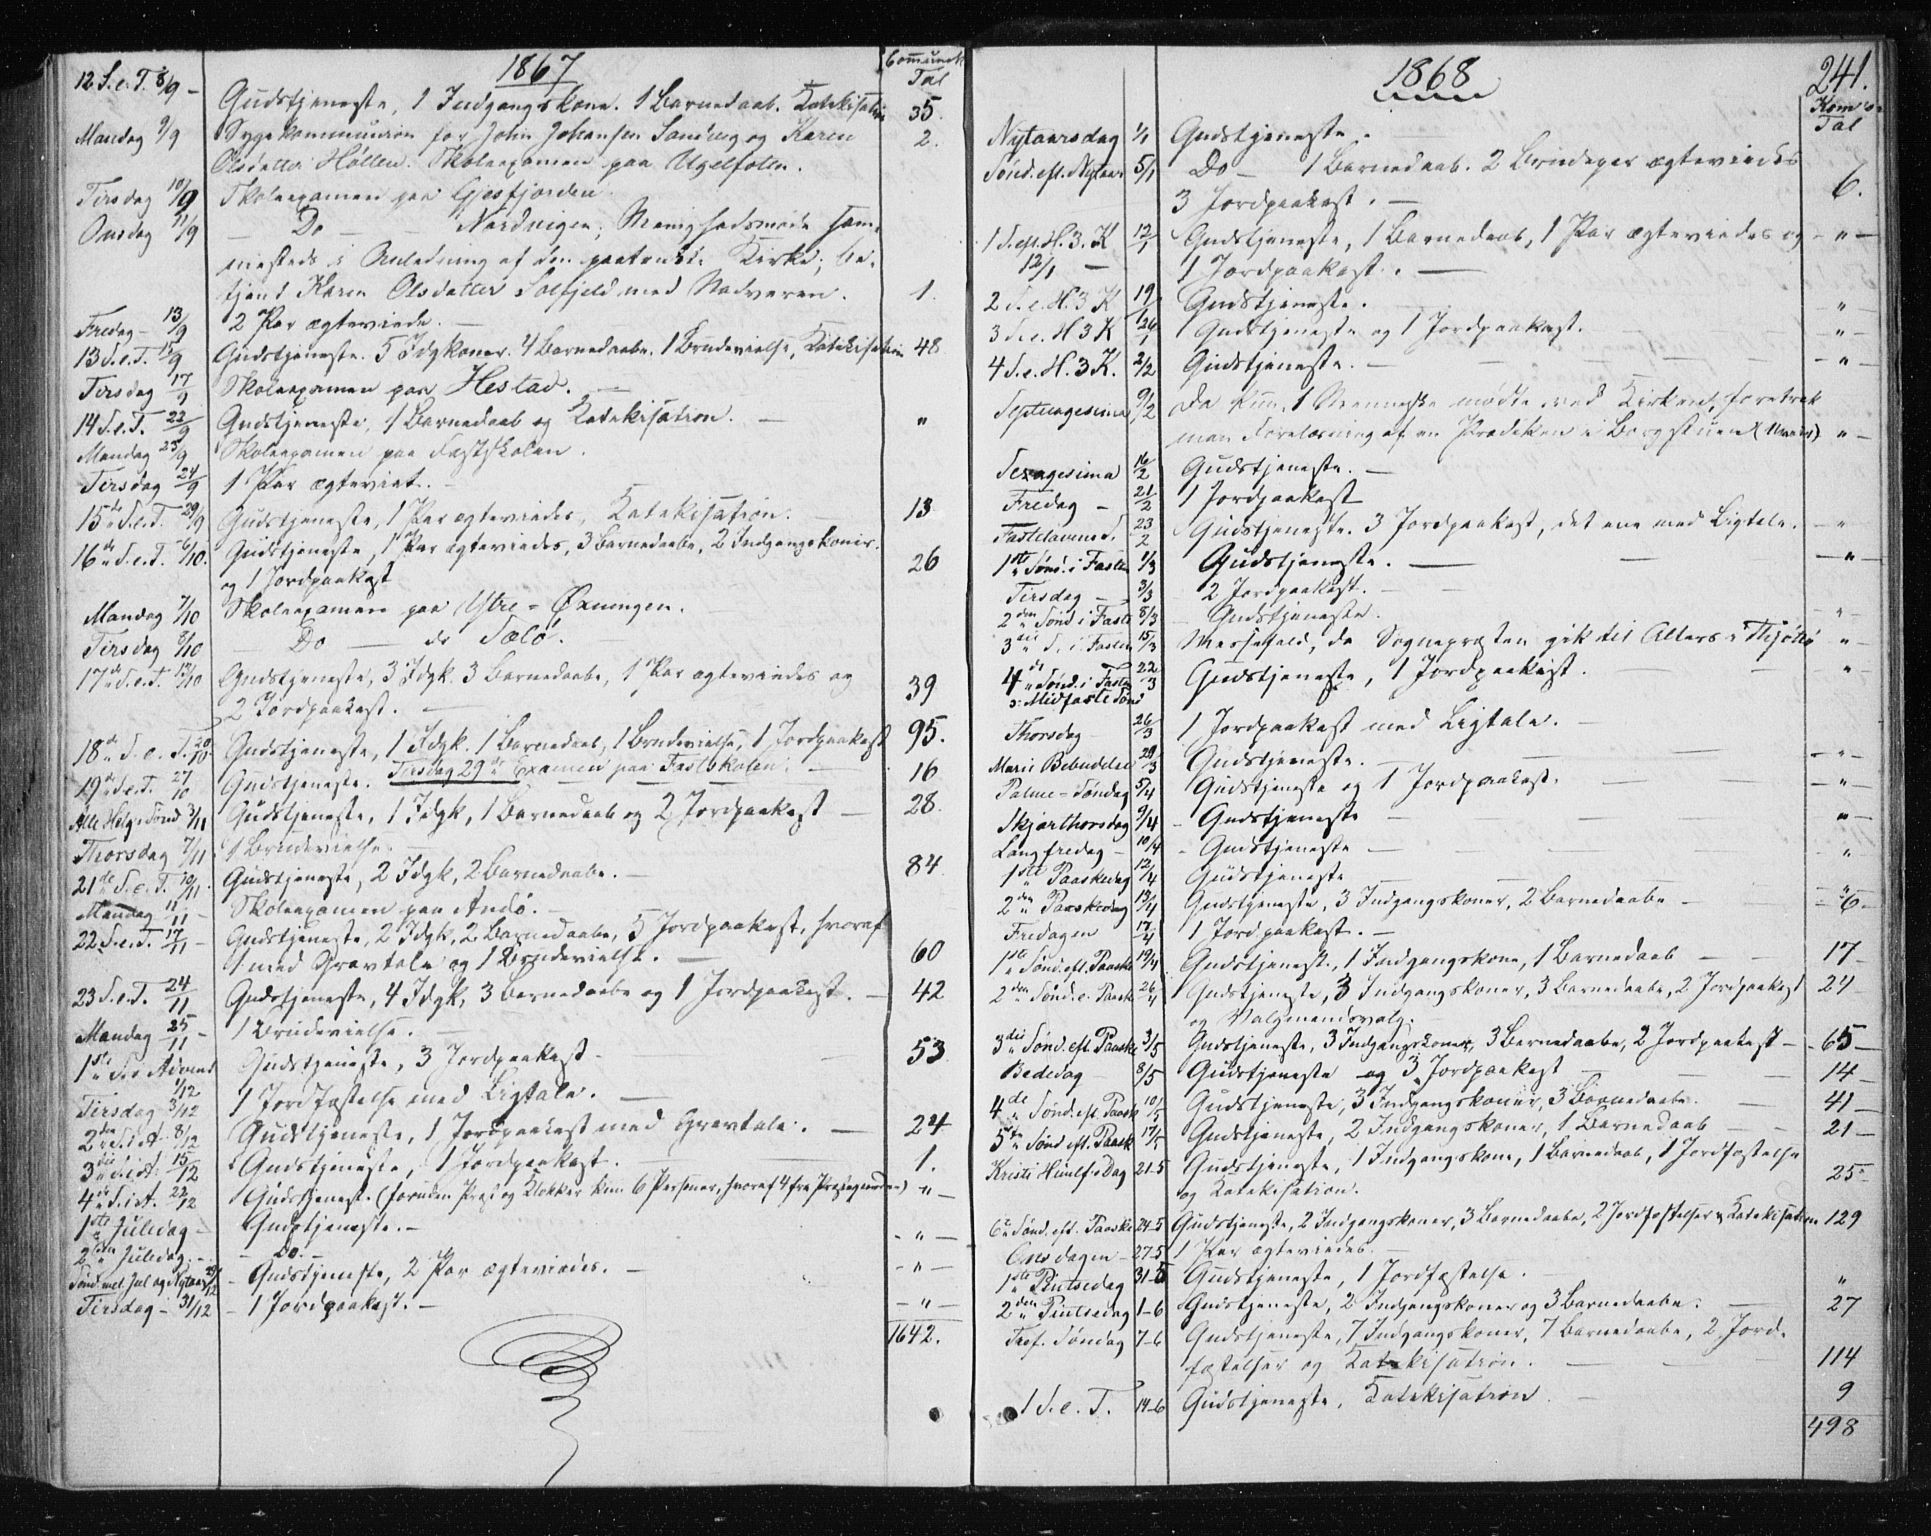 1867
Comunik. Tal
12 S.e.T. 8/9 - Gudstjeneste, 1 Indgangskone. 1 Barnedaab. Katekisation 35.
Mandag 9/9 Sygekommunion for John Johansen Sandvig og Karen 2.
Olsdatter Höllen. Skoleexamen paa Ugelfolln.
Tirsdag 10/9 Skoleexamen paa Gjesfjorden.
Onsdag 11/9 - Do - Nordvigen; Menighedsmøde sam-
mesteds i Anledning af den paatænkte Kirke; be-
tjent Karen Olsdatter Solfjeld med Nadveren. 1.
Fredag - 13/9 2 Par ægteviede. -
13 S.e.T. 15/9 Gudstjeneste. 5 Idgkoner. 4 Barnedaabe. 1 Brudevielse, Katekisation 48
Tirsdag 17/9 Skoleexamen paa Hestad. -
14 S.e.T. 22/9 Gudstjeneste, 1 Barnedaab og Katekisation. - "
Mandag 23/9 Skoleexamen paa Fastskolen.
Tirsdag 24/9 1 Par ægteviet. -
15de S.e.T. 29/9 Gudstjeneste, 1 Par ægtevindes, Katekisation. 13
16de S.e.T. 6/10. Gudstjeneste, 1 Par ægtevindes, 3 Barnedaabe, 2 Indgangskoner.
og 1 Jordpaakast 26
Mandag 7/10 Skoleexamen paa Ytre-Øxningen.
Tirsdag 8/10 - Do - do Tælö. -
17de S.e.T. 13/10 Gudstjeneste, 3 Idgk. 3 Barnedaabe, 1 Par ægtevindes og
2 Jordpaakast. - 39
18de S.e.T. 20/10 Gudstjeneste, 1 Idgk. 1 Barnedaab, 1 Brudevielse, 1 Jordpaakast 95.
19de S.e.T. 27/10 Gudstjeneste. Tirsdag 29de Examen paa Fastskolen. - 16
Alle Helg. Sönd 3/11 Gudstjeneste, 1 Idgk, 1 Barnedaab og 2 Jordpaakast - 28.
Thorsdag 7/11 1 Brudevielse. -
21de S.e.T. 10/11. Gudstjeneste, 2 Idgk, 2 Barnedaabe. - 84
Mandag 11/11 - Skoleexamen paa Andö. -
22 S.e.T. 17/11 - Gudstjeneste, 2 Idgk, 2 Barnedaabe, 5 Jordpaakast, hvoraf
1 med Gravtale og 1 Brudevielse. - 60
23 S.e.T. 24/11 Gudstjeneste, 4 Idgk, 3 Barnedaabe og 1 Jordpaakast. - 42
Mandag 25/11 - 1 Brudevielse. -
1ste S. i Advent 1/12 Gudstjeneste, 3 Jordpaakast - 53
Tirsdag 3/12 1 Jordfæstelse med Ligtale. -
2den S.i.A 8/12 Gudstjeneste, 1 Jordpaakast med Gravtale. - 24
3die S.i.A. 15/12 Gudstjeneste, 1 Jordpaakast. - 1.
4de S.i.A. 22/12 Gudstjeneste (foruden Præst og Klokker kun 6 Personer, hvoraf 4 fra Præstegaarden) - " -
1ste Juledag - Gudstjeneste. - - " -
2den Juledag - - Do. -
Sönd. mel. Jul og Nytaar 29/12 - Gudstjeneste, 2 Par ægtevindes. - - " -
Tirsdag - 31/12 - 1 Jordpaakast. - - " -
1642.
1868
241.
Kom. Tal
Nytaarsdag 1/1 Gudstjeneste.
Sönd. eft. Nytaar 5/1 Do - 1 Barnedaab. 2 Brudepar ægteviedes
3 Jordpaakast. - 6.
1 S. eft. H. 3. K 12/1 Gudstjeneste, 1 Barnedaab, 1 Par ægteviedes og - " -
12/1 - 1 Jordpaakast. -
2 S.e.H. 3 K 19/1 Gudstjeneste. - "
3 S.e.H 3 K 26/1 Gudstjeneste og 1 Jordpaakast. - " -
4 S.e.H. 3 K. 2/2 Gudstjeneste. - - " -
Septuagesima 9/2 Da kun 1 Menneske mødte ved Kirken, foretrak
man Forelæsning af en Prædiken i Borgstuen - " -
Sexagesima 16/2 Gudstjeneste. -
Fredag - 21/2 1 Jordpaakast
Fastelavnss. 23/2 Gudstjeneste. 3 Jordpaakast, det ene med Ligtale. - "
1ste Sönd. i Fasten 1/3 Gudstjeneste. - - " -
Tirsdag - 3/3 2 Jordpaakast. -
2den Sönd i Faste 8/3 - Gudstjeneste. - " -
3die S. i Fasten 15/3 Messefald, da Sognepræsten gik til Alters i Thjöttö "
4de Sönd. i Fasten 22/3 Gudstjeneste, 1 Jordpaakast. "
ɔ: Midfaste Sönd
Thorsdag 26/3 1 Jordpaakast med Ligtale. -
Mariæ Bebudelse 29/3 Gudstjeneste. - - " -
Palme-Söndag 5/4 Gudstjeneste og 1 Jordpaakast. - - " -
Skjærthorsdag 9/4 - Gudstjeneste - "
Langfredag - 10/4 - Gudstjeneste - - " -
1ste Paaskedag 12/4 Gudstjeneste - "
2den Paaskedag 13/4 Gudstjeneste, 3 Indgangskoner, 2 Barnedaabe - - 6 -
Fredagen 17/4 1 Jordpaakast. -
1ste Sönd. eft. Paaske 19/4 Gudstjeneste, 1 Indgangskone, 1 Barnedaab - 17 -
2den Sönd. e. Paask 26/4 Gudstjeneste, 3 Indgangskoner, 3 Barnedaabe, 2 Jordpaakast 24 -
og Valgmandsvalg.
3die Sönd. eft. Paaske 3/5 Gudstjeneste, 3 Indgangskoner, 3 Barnedaabe, 2 Jordpaakast - - 65 -
Bededag 8/5 Gudstjeneste og 3 Jordpaakast - 14 -
4de Sönd. eft. Paaske 10/5 Gudstjeneste, 3 Indgangskoner, 3 Barnedaabe. - 41 -
5te Sönd eft. Paask 17/5 Gudstjeneste, 2 Indgangskoner, 1 Barnedaab - 21 -
Kristi Himlfs Dag 21-5 Gudstjeneste, 1 Indgangskone, 1 Barnedaab, 1 Jordfæstelse
og Katekisation. 25 -
6te Sönd. eft. Paaske 24-5 Gudstjeneste, 2 Indgangskoner, 3 Barnedaabe, 2 Jordfæstelser og Katekisation 129
Onsdagen - 27-5 1 Par ægtevindes. -
1ste Pintsedag 31-5 Gudstjeneste, 1 Jordfæstelse. "
2den Pintsedag 1-6 Gudstjeneste, 2 Indgangskoner og 3 Barnedaabe. - 27
Tref. Söndag 7-6 Gudstjeneste, 7 Indgangskoner, 7 Barnedaabe, 2 Jord-
fæstelser og Katekisation. - 114
1 S.e.T. 14-6 Gudstjeneste, Katekisation - 9
498